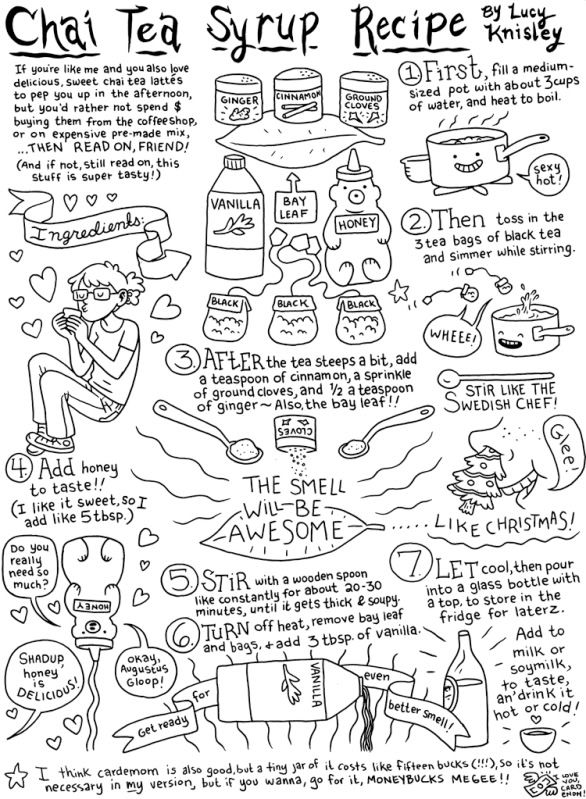 Chai Tea Syrup Recipe
By Lucy
Knisley
If you're like me and you also love
delicious, sweet chai tea lattés
to pep you up in the afternoon,
but you'd rather not spend $
buying them from the coffee shop,
or on expensive pre-made mix,
...THEN READ ON, FRIEND!
(And if not, still read on, this
stuff is super tasty!)
Ingredients:
GINGER
CINNAMON
GROUND
CLOVES
VANILLA
BAY
LEAF
HONEY
BLACK
BLACK
BLACK
1. First, fill a medium-
sized pot with about 3 cups
of water, and heat to boil.
sexy
hot!
2. Then toss in the
3 tea bags of black tea
and simmer while stirring.
WHEEE!
3. AFTER the tea steeps a bit, add
a teaspoon of cinnamon, a sprinkle
of ground cloves, and 1/2 a teaspoon
of ginger ~ Also, the bay leaf!!
CLOVES
STIR LIKE THE
SWEDISH CHEF!
Glee
THE SMELL
WILL BE
AWESOME
.....LIKE CHRISTMAS!
4. Add honey
to taste!!
(I like it sweet, so I
add like 5 tbsp.)
Do you
really
need so
much?
HONEY
SHADUP,
honey
is
DELICIOUS!
okay,
Augustus
Gloop!
5. STIR with a wooden spoon
like constantly for about 20-30
minutes, until it gets thick & soupy.
6. TURN off heat, remove bay leaf
and bags, + add 3 tbsp. of vanilla.
Get ready
for
VANILLA
even
better smell!
7. LET cool, then pour
into a glass bottle with
a top, to store in the
fridge for laterz.
Add to
milk or
soymilk,
to taste,
an' drink it
hot or cold!
I think cardemom is also good, but a tiny jar of it costs like fifteen bucks (!!!), so it's not
necessary in my version, but if you wanna, go for it, MONEYBUCKS MEGEE!!
I LOVE
YOU,
CARD
EMOM!